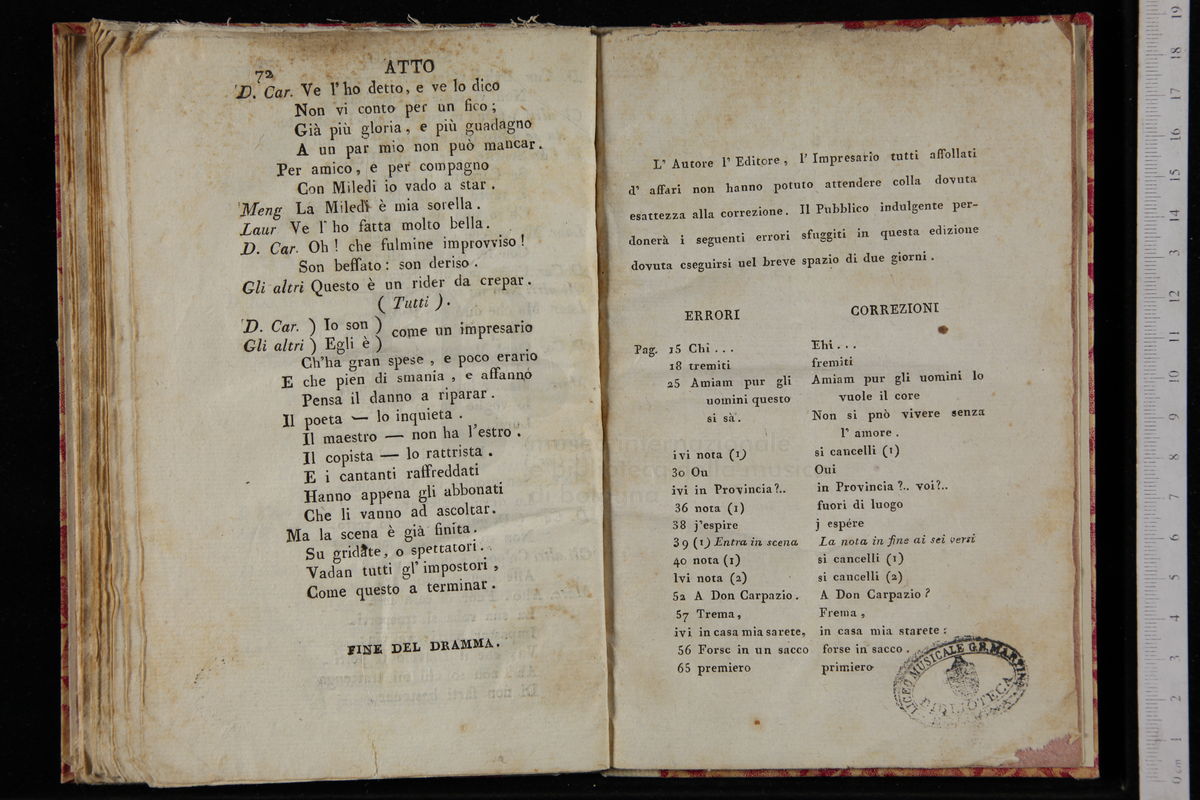 72
ATTO
D. Car. Ve l'ho detto, e ve lo dico
Non vi conto per un fico;
Già più gloria, e più guadagno
A un par mio non può mancar.
Per amico, e per compagno
Con Miledi io vado a star.
Meng La Miledi è mia sorella.
Laur Ve l'ho fatta molto bella.
D. Car. Oh! che fulmine improvviso!
Son beffato: son deriso.
Gli altri Questo è un rider da crepar.
( Tutti ).
D. Car. ) Io son ) come un impresario
Gli altri ) Egli è )
Ch'ha gran spese, e poco erario
E che pien di smania, e affanno
Pensa il danno a riparar.
Il poeta — lo inquieta.
Il maestro — non ha l'estro.
Il copista — lo rattrista.
E i cantanti raffreddati
Hanno appena gli abbonati
Che li vanno ad ascoltar.
Ma la scena è già finita.
Su gridate, o spettatori.
Vadan tutti gl'impostori,
Come questo a terminar.
FINE DEL DRAMMA.
L' Autore l' Editore, l' Impresario tutti affollati
d' affari non hanno potuto attendere colla dovuta
esattezza alla correzione. Il Pubblico indulgente per-
donerà i seguenti errori sfuggiti in questa edizione
dovuta eseguirsi nel breve spazio di due giorni.
ERRORI CORREZIONI
Pag. 15 Chi... Ehi...
18 tremiti fremiti
25 Amiam pur gli Amiam pur gli uomini lo
uomini questo vuole il core
si sà. Non si pnò vivere senza
l' amore.
ivi nota (1) si cancelli (1)
30 Ou Oui
ivi in Provincia?.. in Provincia?.. voi?..
36 nota (1) fuori di luogo
38 j'espire j espére
39 (1) Entra in scena La nota in fine ai sei versi
40 nota (1) si cancelli (1)
Ivi nota (2) si cancelli (2)
52 A Don Carpazio. A Don Carpazio?
57 Trema, Frema,
ivi in casa mia sarete, in casa mia starete:
56 Forse in un sacco forse in sacco.
65 premiero primiero
LICEO MUSICALE G.B. MARTINI
BIBLIOTECA
museo internazionale
biblioteca della musica
di bologna